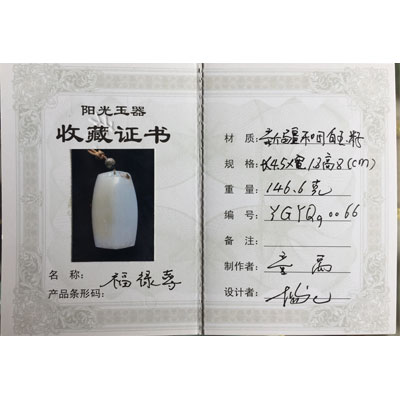 阳光玉器
收藏证书
名 称: 福禄寿
产品条形码:
材 质: 新疆和田白玉籽
规 格: 长4.5×宽1.3高8(cm)
重 量: 146.6克
编 号: YGYQg0066
备 注:
制作者:
设计者: